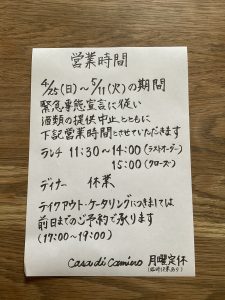 営業時間
4/25(日)～5/11(火)の期間
緊急事態宣言に従い
酒類の提供中止とともに
下記営業時間とさせていただきます
ランチ 11:30～14:00(ラストオーダー)
15:00(クローズ)
ディナー 休業
テイクアウト・ケータリングにつきましては
前日までのご予約で承ります
(17:00～19:00)
Casa di Camino 月曜定休
(臨時休業あり)